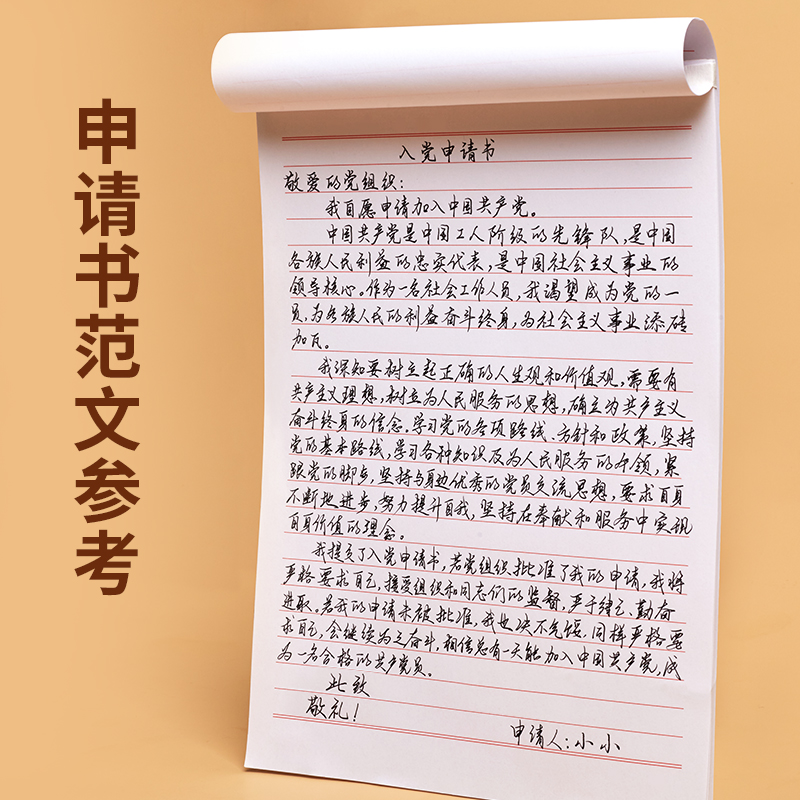 申请书范文参考
入党申请书
敬爱的党组织：
我自愿申请加入中国共产党。
中国共产党是中国工人阶级的先锋队，是中国
各族人民利益的忠实代表，是中国社会主义事业的
领导核心。作为一名社会工作人员，我渴望成为党的一
员，为各族人民的利益奋斗终身，为社会主义事业添砖
加瓦。
我深知要树立起正确的人生观和价值观，需要有
共产主义理想，树立为人民服务的思想，确立为共产主义
奋斗终身的信念。学习党的各项路线、方针和政策，坚持
党的基本路线，学习各种知识及为人民服务的本领，紧
跟党的脚步，坚持与身边优秀的党员交流思想，要求自身
不断地进步，努力提升自我，坚持在奉献和服务中实现
自身价值的理念。
我提交了入党申请书，若党组织批准了我的申请，我将
严格要求自己，接受组织和同志们的监督，严于律己，勤奋
进取。若我的申请未被批准，我也决不气馁，同样严格要
求自己，会继续为之奋斗，相信总有一天能加入中国共产党，成
为一名合格的共产党员。
此致
敬礼！
申请人：小小